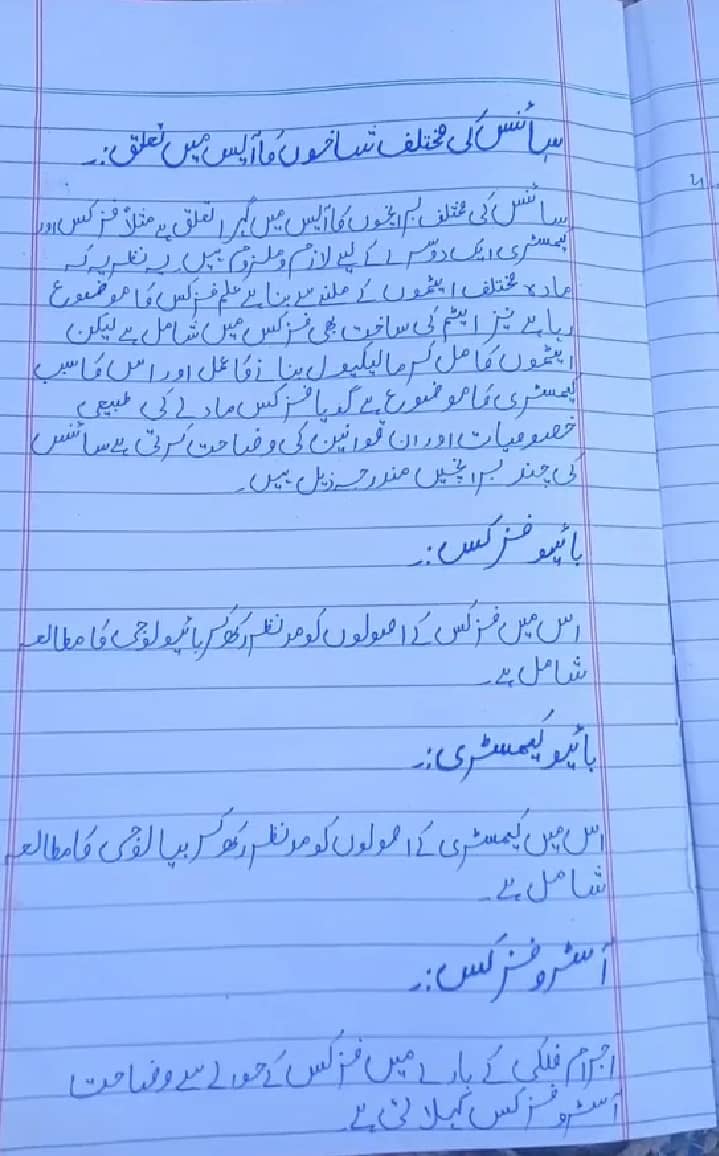 سائنس کی مختلف شاخوں کا آپس میں تعلق:۔
سائنس کی مختلف برانچوں کا آپس میں گہرا تعلق ہے مثلاً فزکس اور
کیمسٹری ایک دوسرے کے لیے لازم و ملزوم ہیں۔ یہ نظریہ کہ
مادہ مختلف ایٹموں کے ملنے سے بنا ہے علم فزکس کا موضوع
رہا ہے نیز ایٹم کی ساخت بھی فزکس میں شامل ہے لیکن
ایٹموں کا مل کر مالیکیول بنانے کا عمل اور اس کا سبب
کیمسٹری کا موضوع ہے گویا فزکس مادے کی طبیعی
خصوصیات اور ان قوانین کی وضاحت کرتی ہے سائنس
کی چند برانچیں مندرجہ ذیل ہیں۔
بائیو فزکس:۔
اس میں فزکس کے اصولوں کو مدنظر رکھ کر بائیولوجی کا مطالعہ
شامل ہے۔
بائیو کیمسٹری:۔
اس میں کیمسٹری کے اصولوں کو مدنظر رکھ کر بیالوجی کا مطالعہ
شامل ہے۔
آسٹرو فزکس:۔
اجرام فلکی کے بارے میں فزکس کے حوالے سے وضاحت
آسٹرو فزکس کہلاتی ہے۔